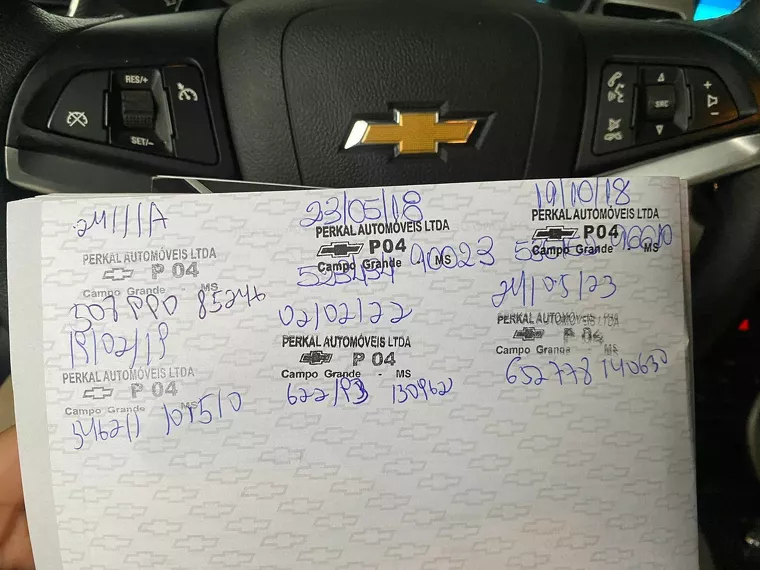 RES/+
SET/-
SRC
+
-
23/05/18
PERKAL AUTOMÓVEIS LTDA
P04
Campo Grande - MS
90023
19/10/18
PERKAL AUTOMÓVEIS LTDA
P04
Campo Grande - MS
PERKAL AUTOMÓVEIS LTDA
P 04
Campo Grande - MS
85246
19/02/19
PERKAL AUTOMÓVEIS LTDA
P 04
Campo Grande - MS
02/02/22
PERKAL AUTOMÓVEIS LTDA
P 04
Campo Grande - MS
130962
24/05/23
PERKAL AUTOMÓVEIS LTDA
P 04
Campo Grande - MS
652778 140630